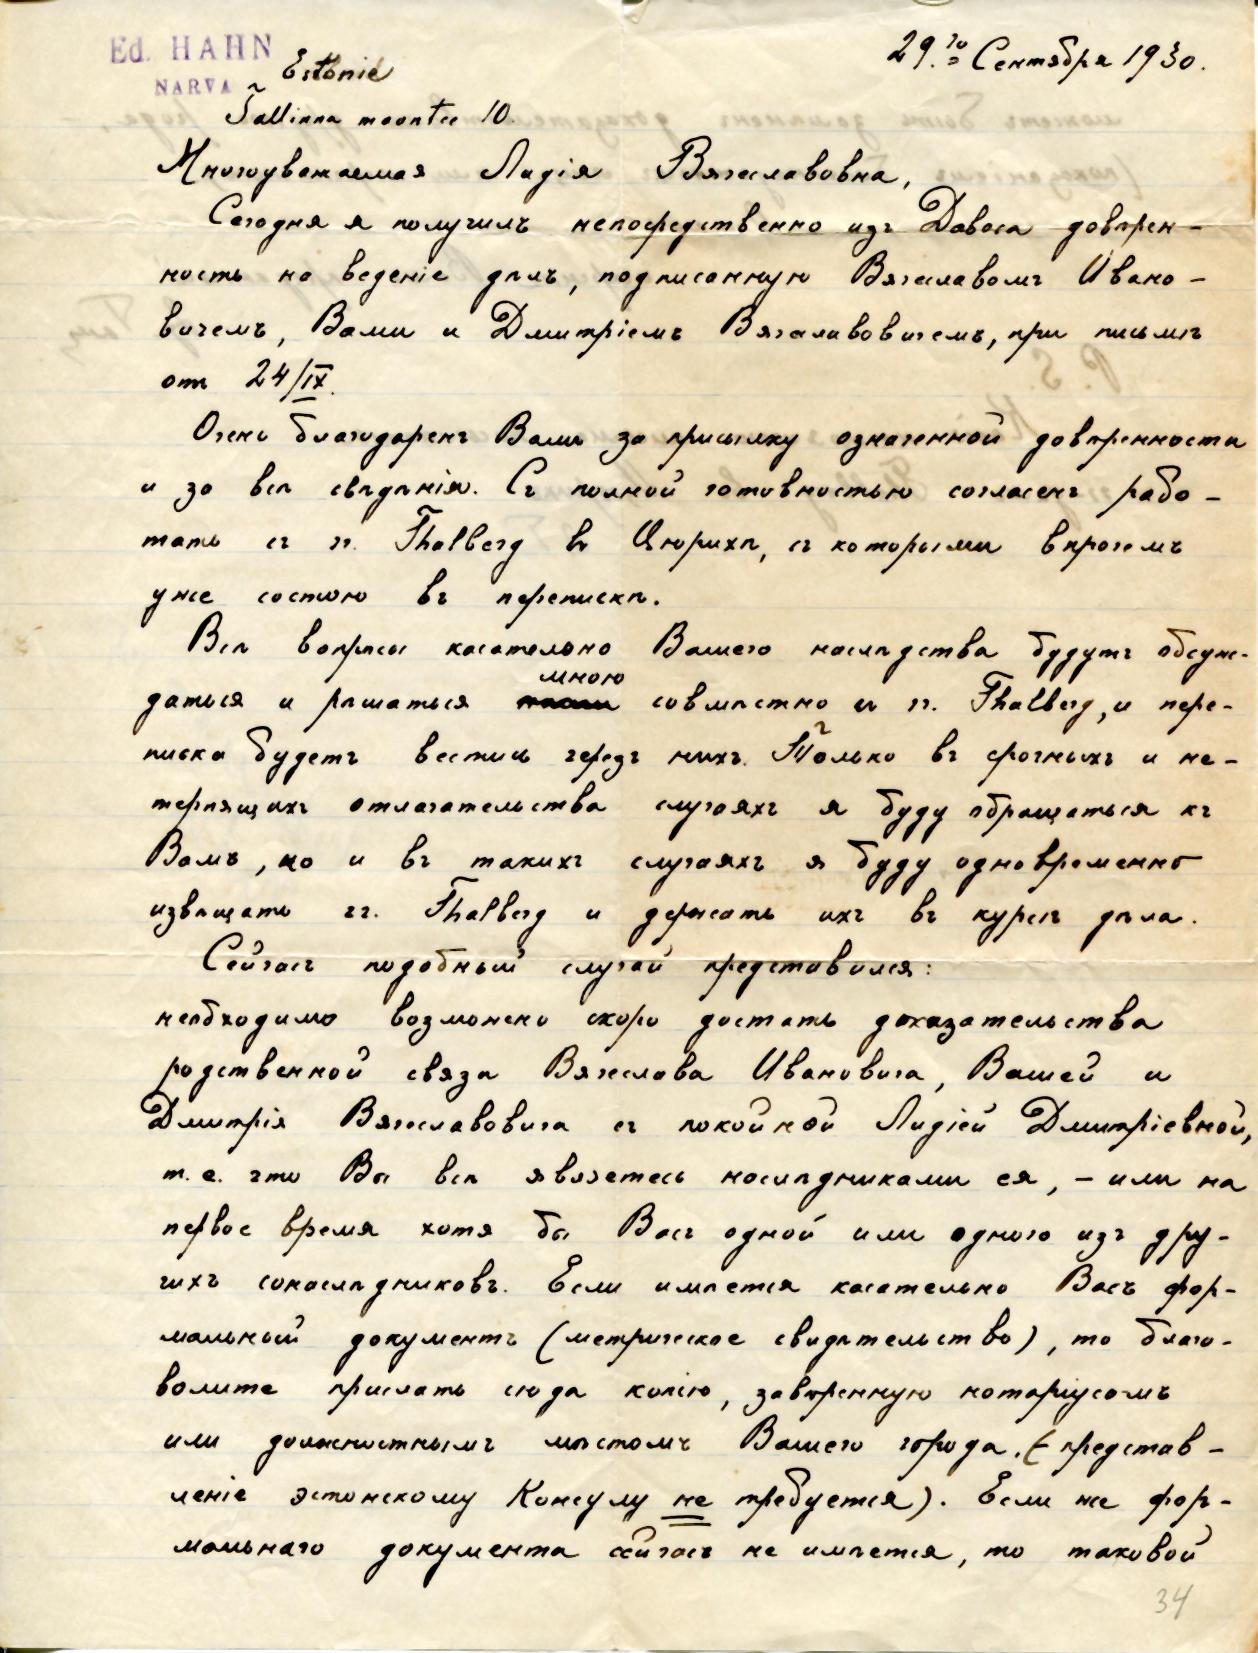 Ed. HAHN
NARVA
Estonie
Tallinna maantee 10.
29.го Сентября 1930.
Многоуважаемая Лидія Вячеславовна,
Сегодня я получилъ непосредственно изъ Давоса довѣрен-
ность на веденіе дѣлъ, подписанную Вячеславомъ Ивано-
вичемъ, Вами и Дмитріемъ Вячеславовичемъ, при письмѣ
отъ 24/IX.
Очень благодаренъ Вамъ за присылку означенной довѣренности
и за всѣ свѣдѣнія. Съ полной готовностью согласенъ рабо-
тать съ гг. Thalberg въ Цюрихѣ, съ которыми впрочемъ
уже состою въ перепискѣ.
Всѣ вопросы касательно Вашего наслѣдства будутъ обсуж-
мною
даться и рѣшаться совмѣстно съ гг. Thalberg, и пере-
писка будетъ вестись черезъ нихъ. Только въ срочныхъ и не-
терпящихъ отлагательства случаяхъ я буду обращаться къ
Вамъ, но и въ такихъ случаяхъ я буду одновременно
извѣщать гг. Thalberg и держать ихъ въ курсѣ дѣла.
Сейчасъ подобный случай представился:
необходимо возможно скоро достать доказательства
родственной связи Вячеслава Ивановича, Вашей и
Дмитрія Вячеславовича съ покойной Лидіей Дмитріевной,
т.е. что Вы всѣ являетесь наслѣдниками ея, – или на
первое время хотя бы Васъ одной или одного изъ дру-
гихъ сонаслѣдниковъ. Если имѣется касательно Васъ фор-
мальный документъ (метрическое свидѣтельство), то благо-
волите прислать сюда копію, завѣренную нотаріусомъ
или должностнымъ мѣстомъ Вашего города. (представ-
леніе эстонскому Консулу не требуется). Если же фор-
мальнаго документа сейчасъ не имѣется, то таковой
34